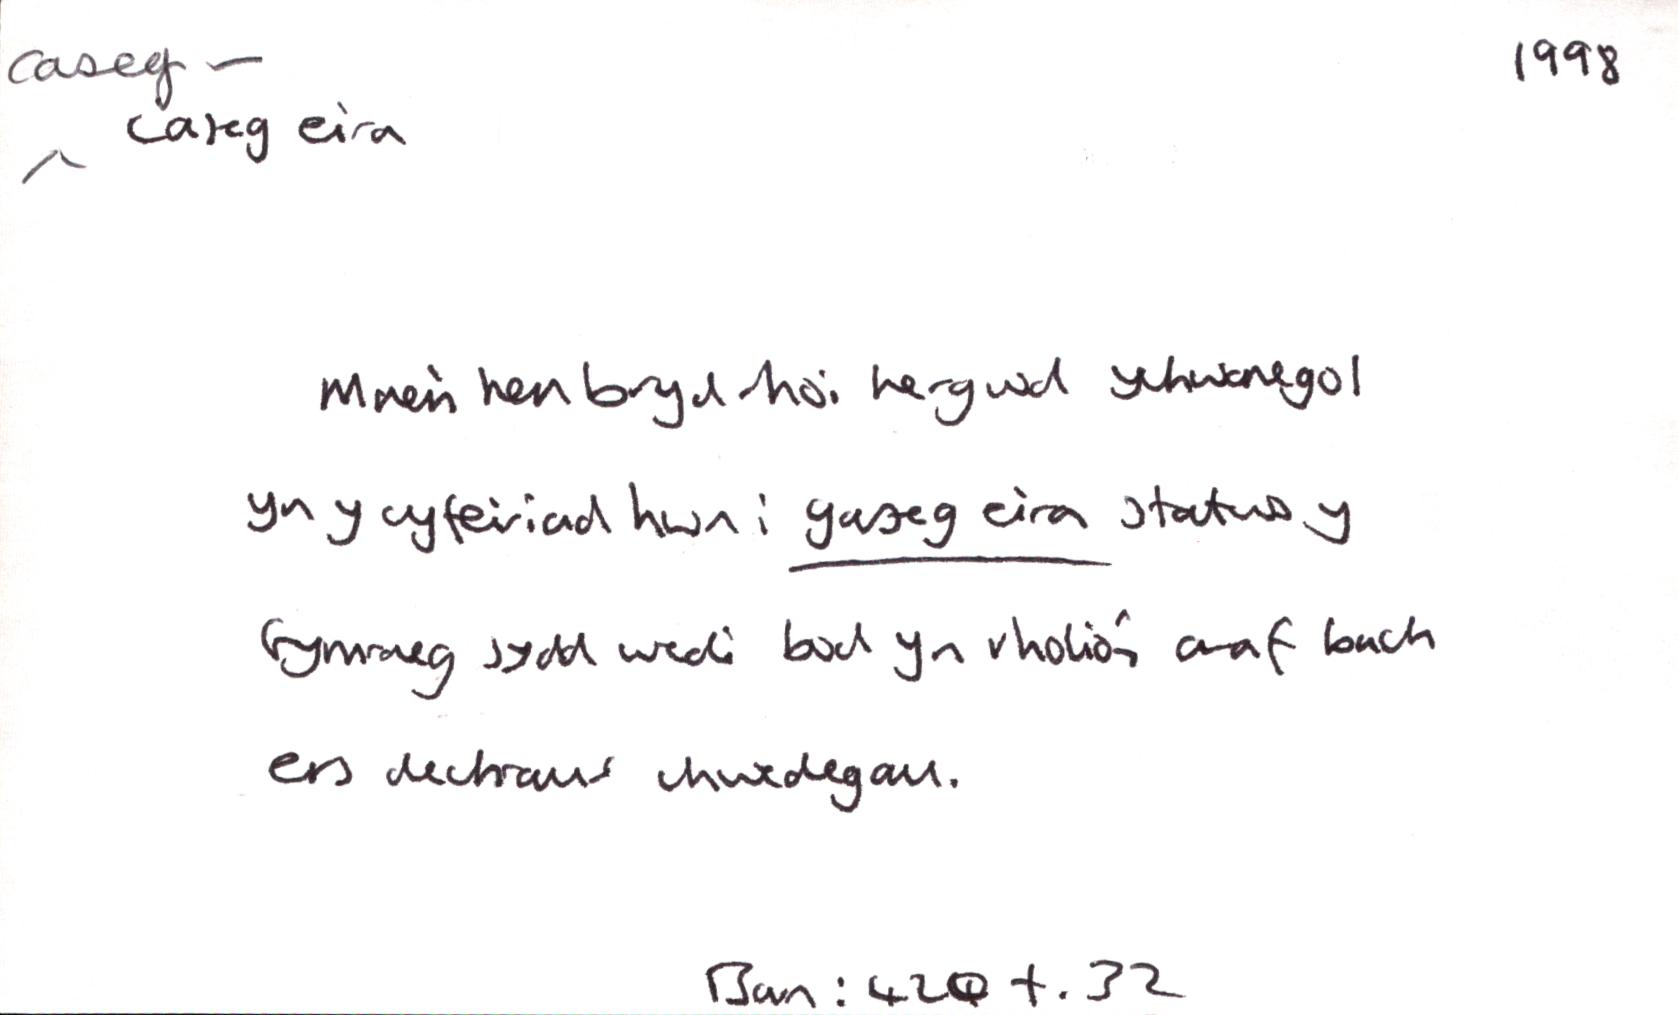 caseg –
1998
caseg eira
Mae'n hen bryd rhoi hergwd ychwanegol
yn y cyfeiriad hwn i gaseg eira statws y
Gymraeg sydd wedi bod yn rholio'n araf bach
ers dechrau'r chwedegau.
Barn: 420 t. 32